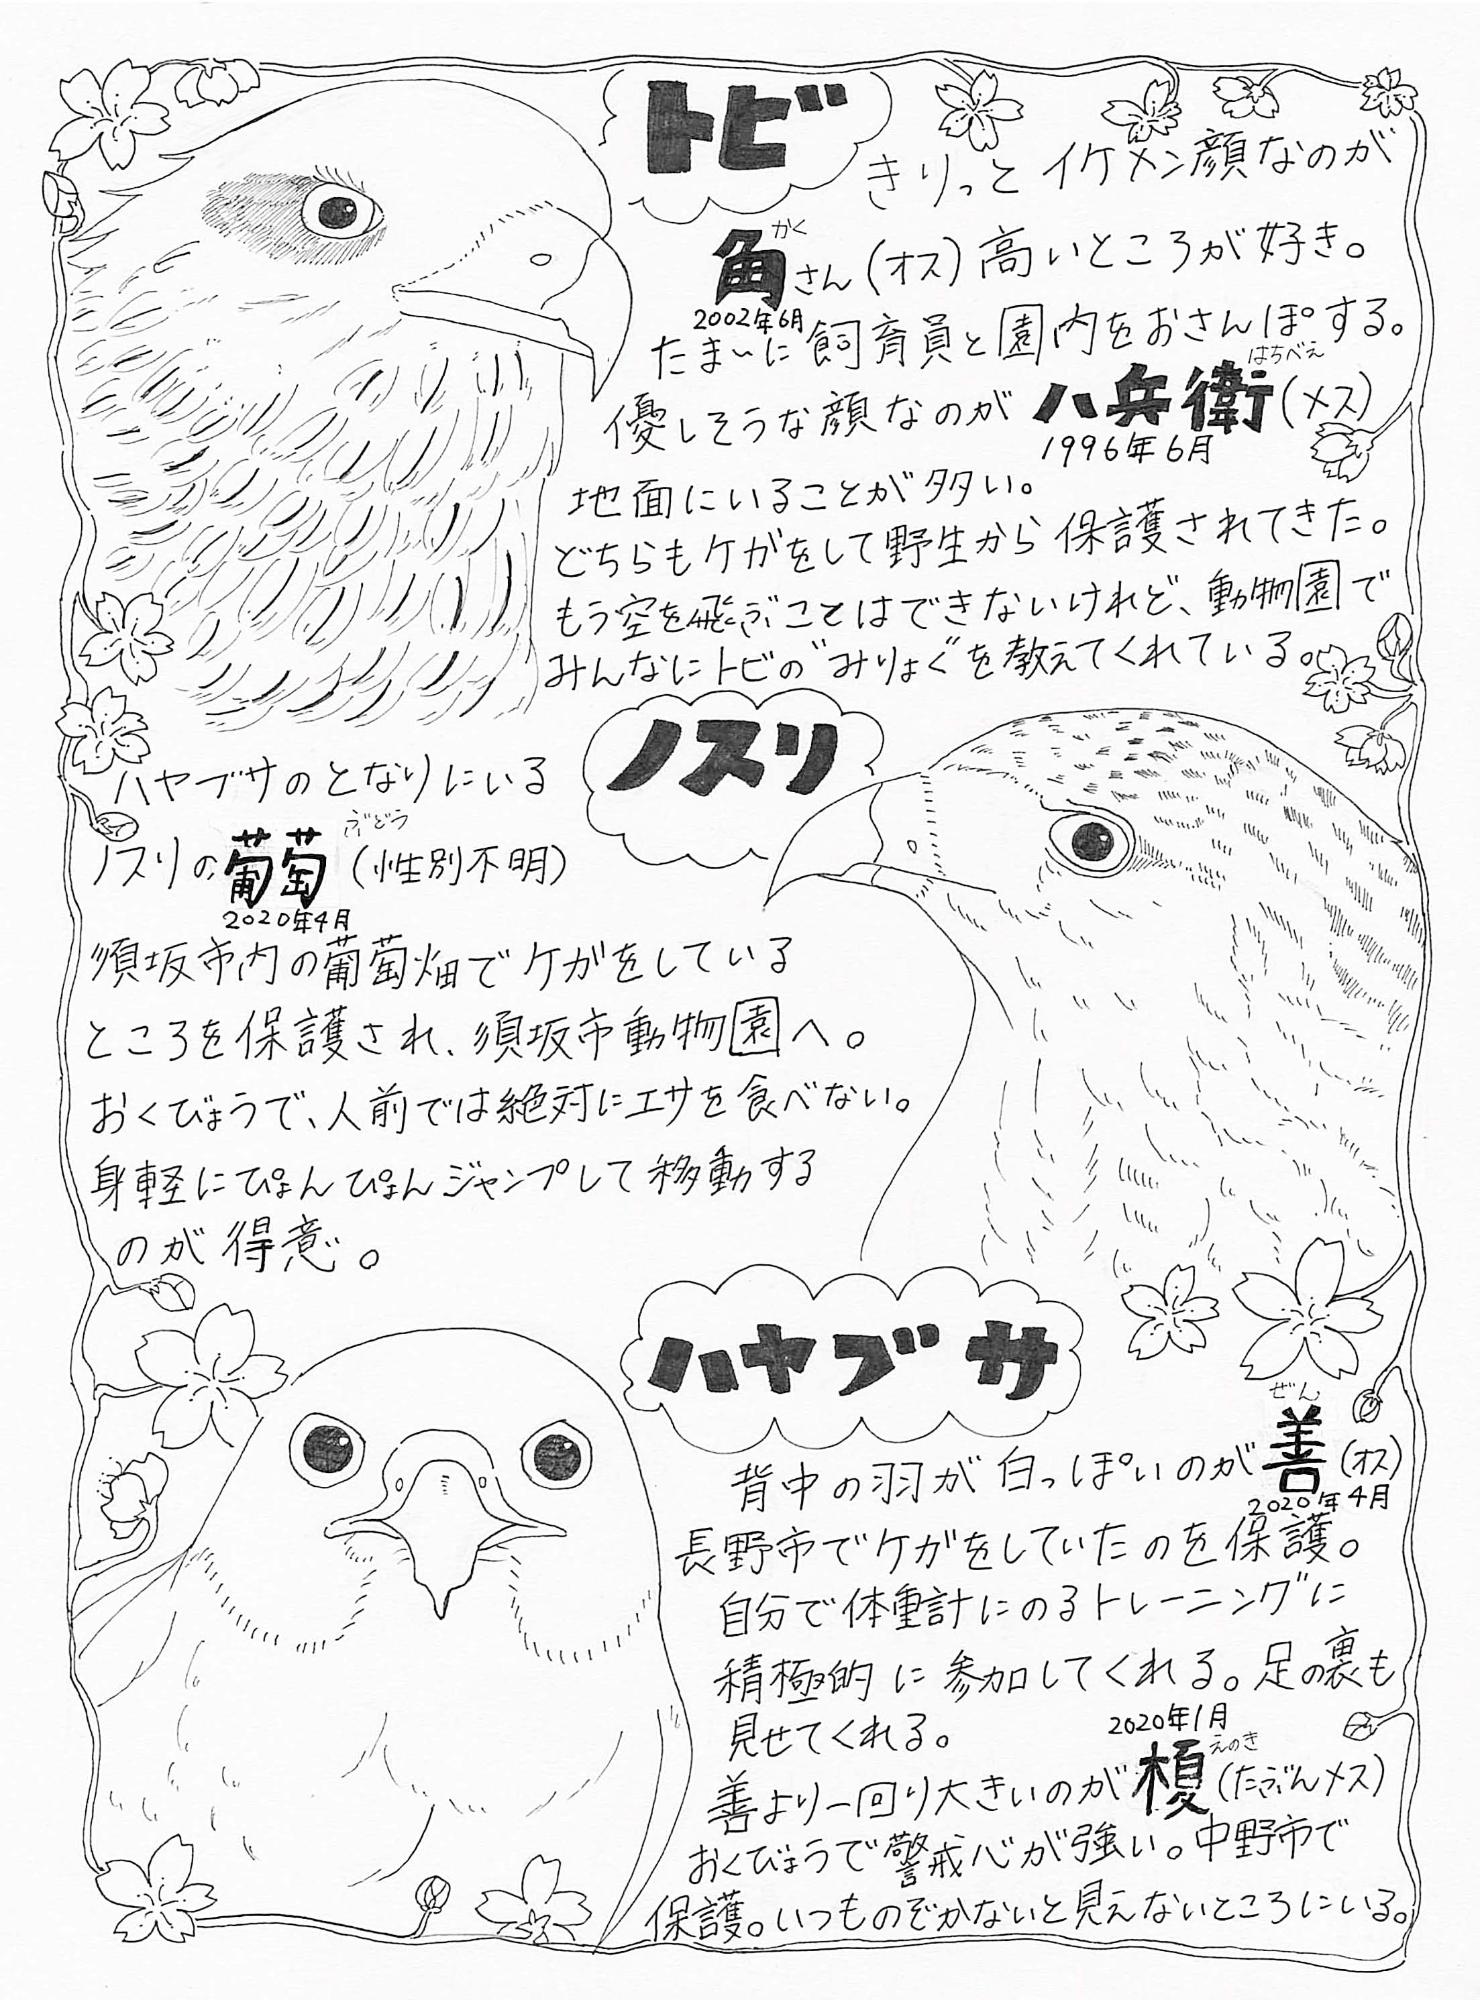 トビ
きりっとイケメン顔なのが
がく
角さん(オス)高いところが好き。
2002年6月
たまーに飼育員と園内をおさんぽする。
はちべえ
優しそうな顔なのが八兵衛(メス)
1996年6月
地面にいることが多い。
どちらもケガをして野生から保護されてきた。
もう空を飛ぶことはできないけれど、動物園で
みんなにトビの"みりょく"を教えてくれている。
ノスリ
ハヤブサのとなりにいる
ぶどう
ノスリの葡萄(性別不明)
2020年4月
須坂市内の葡萄畑でケガをしている
ところを保護され、須坂市動物園へ。
おくびょうで、人前では絶対にエサを食べない。
身軽にぴょんぴょんジャンプして移動する
のが得意。
ハヤブサ
ぜん
背中の羽が白っぽいのが善(オス)
2020年4月
長野市でケガをしていたのを保護。
自分で体重計にのるトレーニングに
積極的に参加してくれる。足の裏も
見せてくれる。
2020年1月
えのき
善より一回り大きいのが榎(たぶんメス)
おくびょうで警戒心が強い。中野市で
保護。いつものぞかないと見えないところにいる。